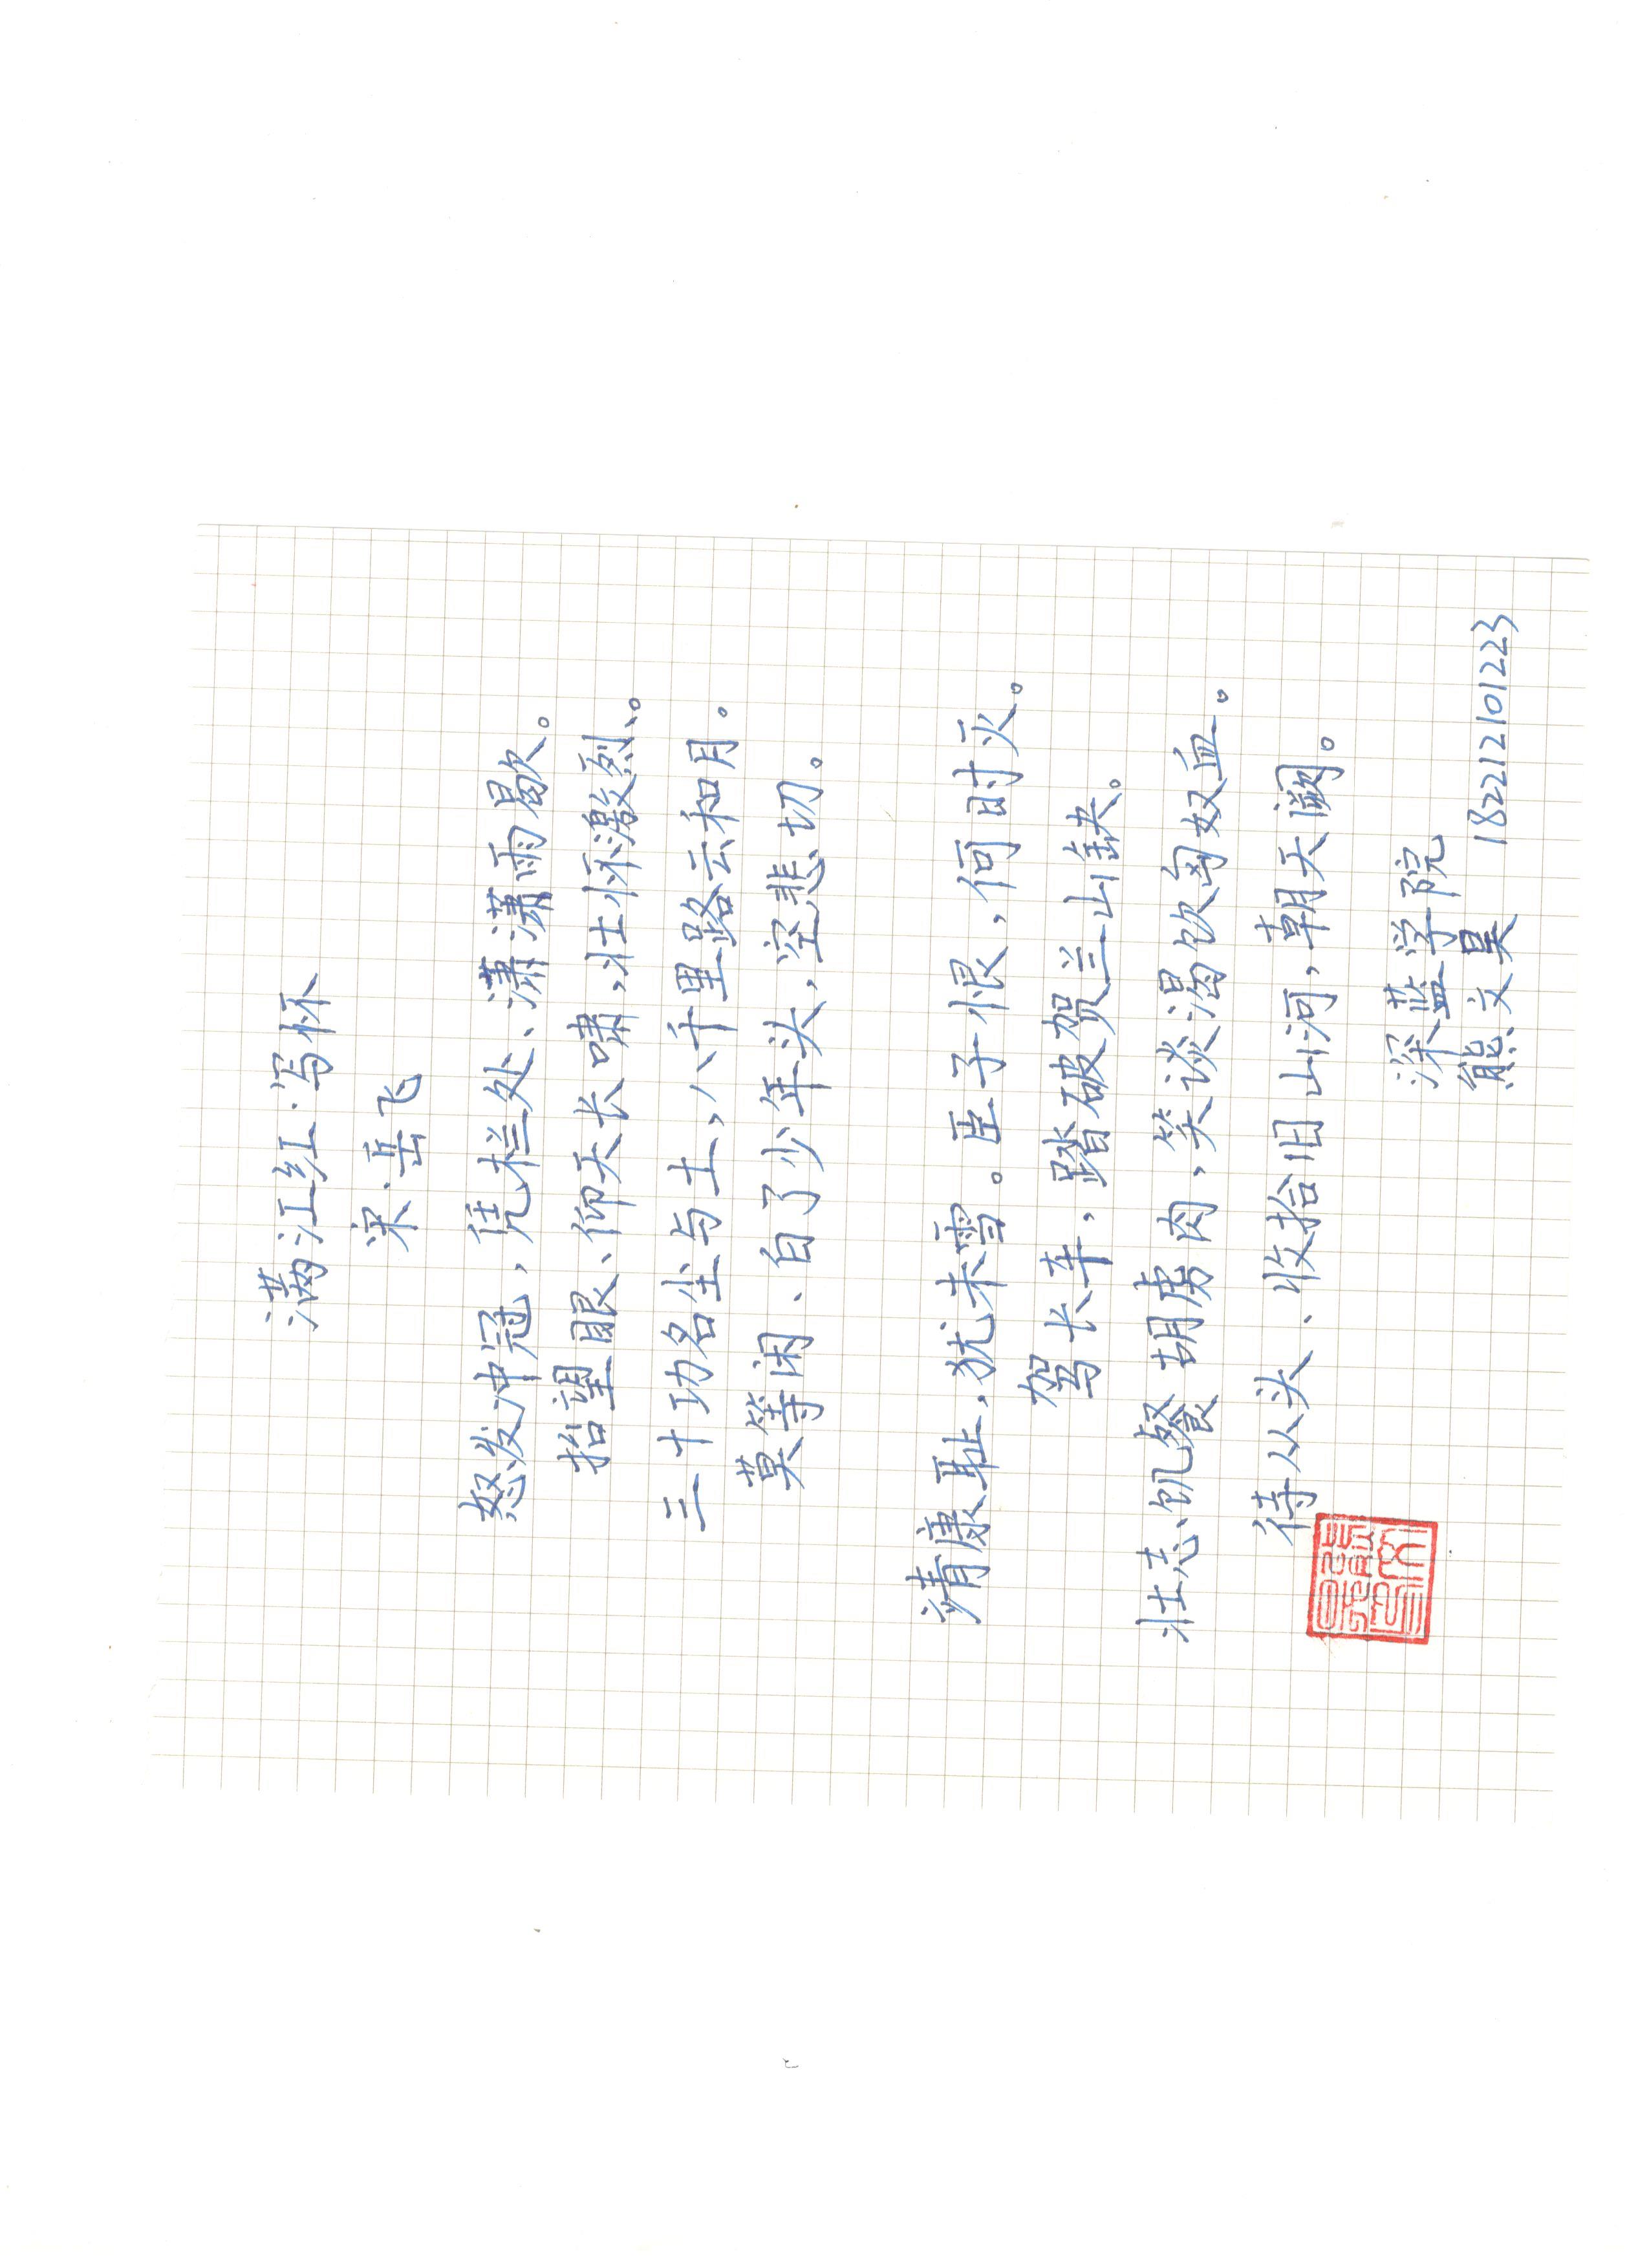 满江红·写怀
宋·岳飞
怒发冲冠，凭栏处、潇潇雨歇。
抬望眼、仰天长啸，壮怀激烈。
三十功名尘与土，八千里路云和月。
莫等闲、白了少年头，空悲切。
靖康耻，犹未雪。臣子恨，何时灭。
驾长车，踏破贺兰山缺。
壮志饥餐胡虏肉，笑谈渴饮匈奴血。
待从头、收拾旧山河，朝天阙。
深蓝学院
熊文昊 182212101223